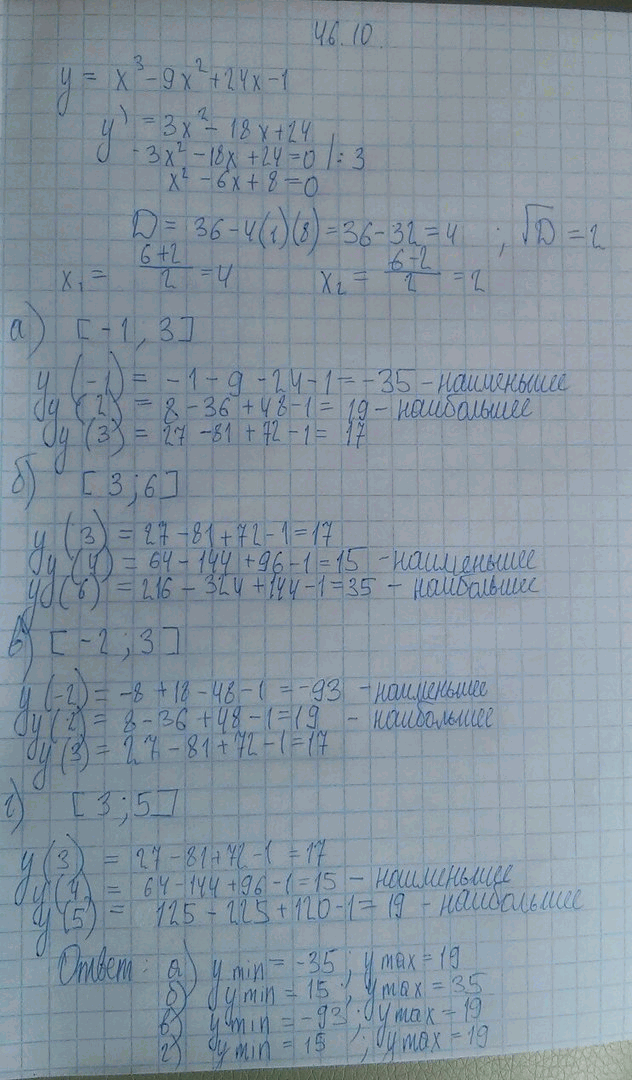 46.10.
y = x³ - 9x² + 24x - 1
y' = 3x² - 18x + 24
3x² - 18x + 24 = 0 | : 3
x² - 6x + 8 = 0
D = 36 - 4(1)(8) = 36 - 32 = 4 ; √D = 2
x₁ = (6+2)/2 = 4 x₂ = (6-2)/2 = 2
а) [-1, 3]
y(-1) = -1 - 9 - 24 - 1 = -35 - наименьшее
y(2) = 8 - 36 + 48 - 1 = 19 - наибольшее
y(3) = 27 - 81 + 72 - 1 = 17
б) [3 ; 6]
y(3) = 27 - 81 + 72 - 1 = 17
y(4) = 64 - 144 + 96 - 1 = 15 - наименьшее
y(6) = 216 - 324 + 144 - 1 = 35 - наибольшее
в) [-2 ; 3]
y(-2) = -8 + 18 - 48 - 1 = -93 - наименьшее
y(2) = 8 - 36 + 48 - 1 = 19 - наибольшее
y(3) = 27 - 81 + 72 - 1 = 17
г) [3 ; 5]
y(3) = 27 - 81 + 72 - 1 = 17
y(4) = 64 - 144 + 96 - 1 = 15 - наименьшее
y(5) = 125 - 225 + 120 - 1 = 19 - наибольшее
Ответ: а) y min = -35 ; y max = 19
б) y min = 15 ; y max = 35
в) y min = -93 ; y max = 19
г) y min = 15 ; y max = 19